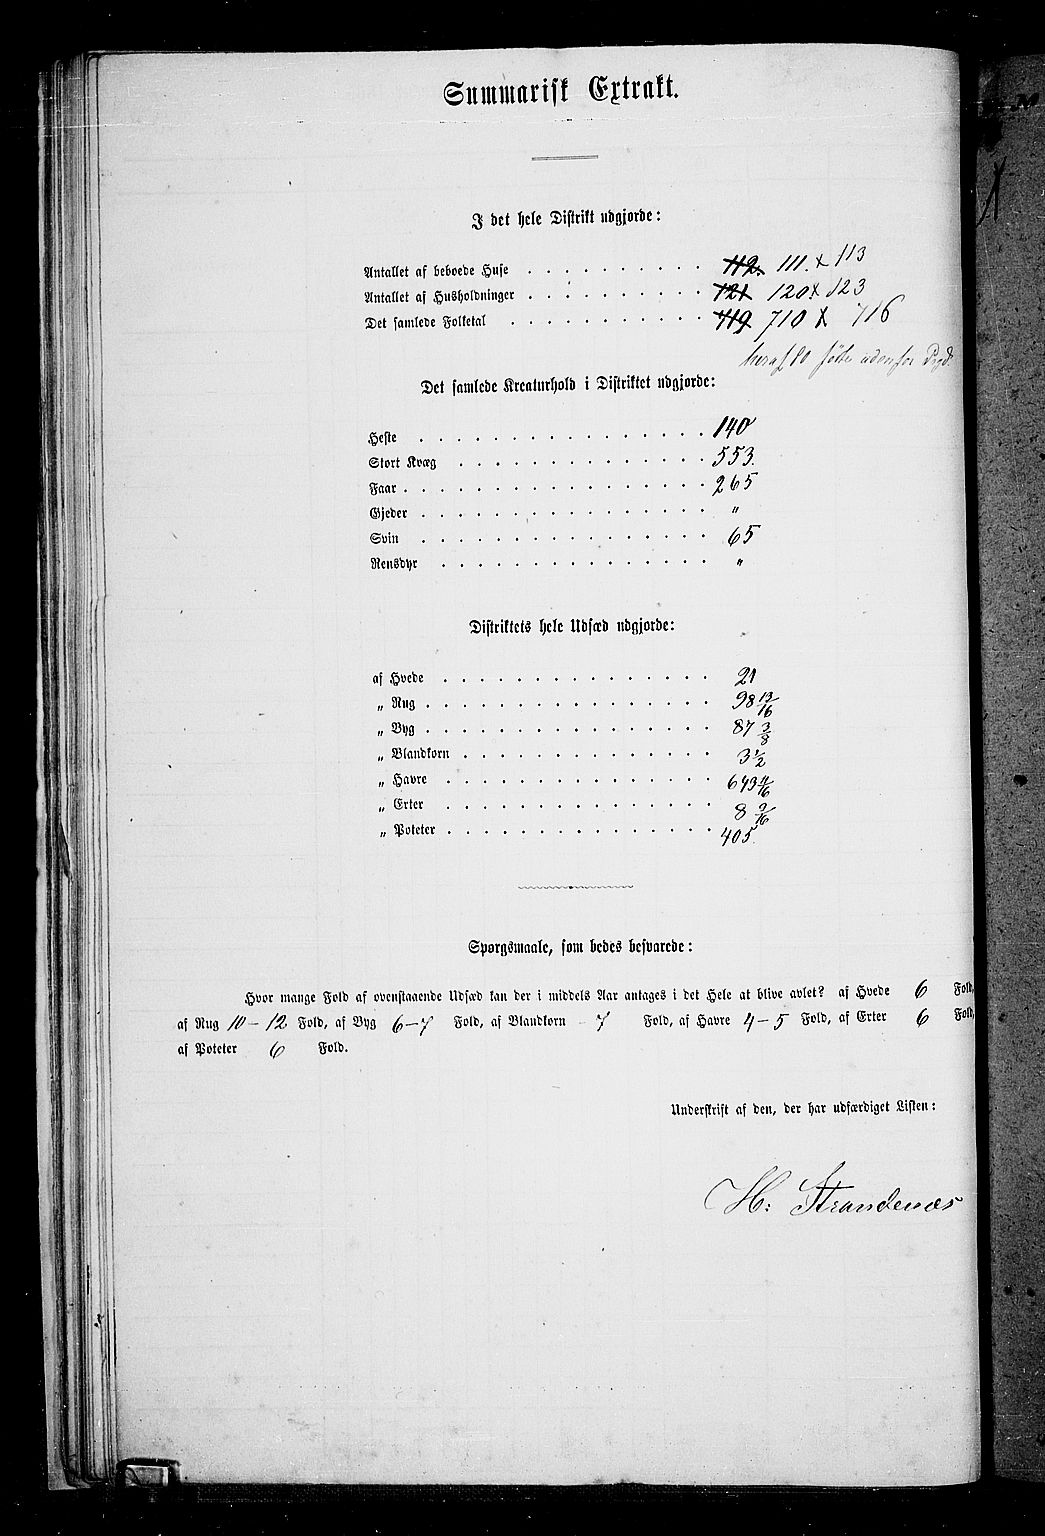 Summarisk Extrakt.
I det hele Distrikt udgjorde:
Antallet af beboede Huse . . . . . . . . . . 112. 111. x 113
Antallet af Husholdninger . . . . . . . . . . 121 120 x 123
Det samlede Folketal . . . . . . . . . . . 719 710 x 716
heraf 10 udenfor
Det samlede Kreaturhold i Distriktet udgjorde:
Heste . . . . . . . . . . . . . . . . 140
Stort Kvæg . . . . . . . . . . . . . . 553.
Faar . . . . . . . . . . . . . . . . . 265
Gjeder . . . . . . . . . . . . . . . . "
Svin . . . . . . . . . . . . . . . . 65
Rensdyr . . . . . . . . . . . . . . . "
Distriktets hele Udsæd udgjorde:
af Hvede . . . . . . . . . . . . . . . 21
„ Rug . . . . . . . . . . . . . . . . 98 13/16
„ Byg . . . . . . . . . . . . . . . . 87 3/8
„ Blandkorn . . . . . . . . . . . . . . 3 1/2
„ Havre . . . . . . . . . . . . . . . 643 11/16
„ Erter . . . . . . . . . . . . . . . 8 9/16
„ Poteter . . . . . . . . . . . . . . . 405.
Spørgsmaale, som bedes besvarede:
Hvor mange Fold af ovenstaaende Udsæd kan der i middels Aar antages i det Hele at blive avlet? af Hvede 6 Fold,
af Rug 10-12 Fold, af Byg 6-7 Fold, af Blandkorn 7 Fold, af Havre 4-5 Fold, af Erter 6 Fold,
af Poteter 6 Fold.
Underskrift af den, der har udfærdiget Listen:
H: Strandenæs